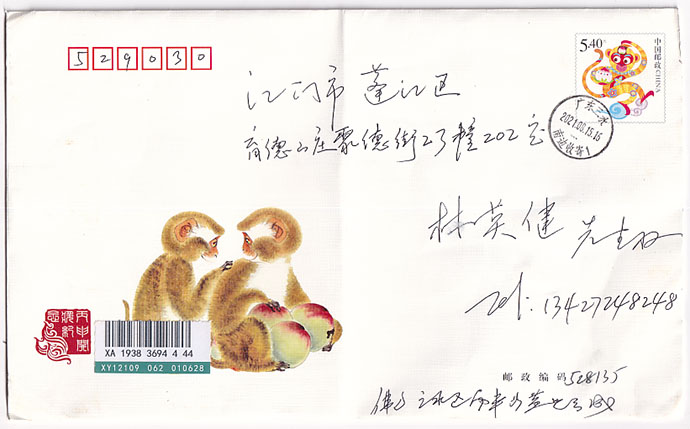 529030
5.40元
中国邮政 CHINA
江门市 蓬江区
广东三水
2021.06.15.15
南边收寄1
育德山庄聚德街23幢202室
林英健 先生收
Tel: 13427248248
丙申年
XA 1938 3694 4 44
XY12109 062 010628
邮政编码 528135